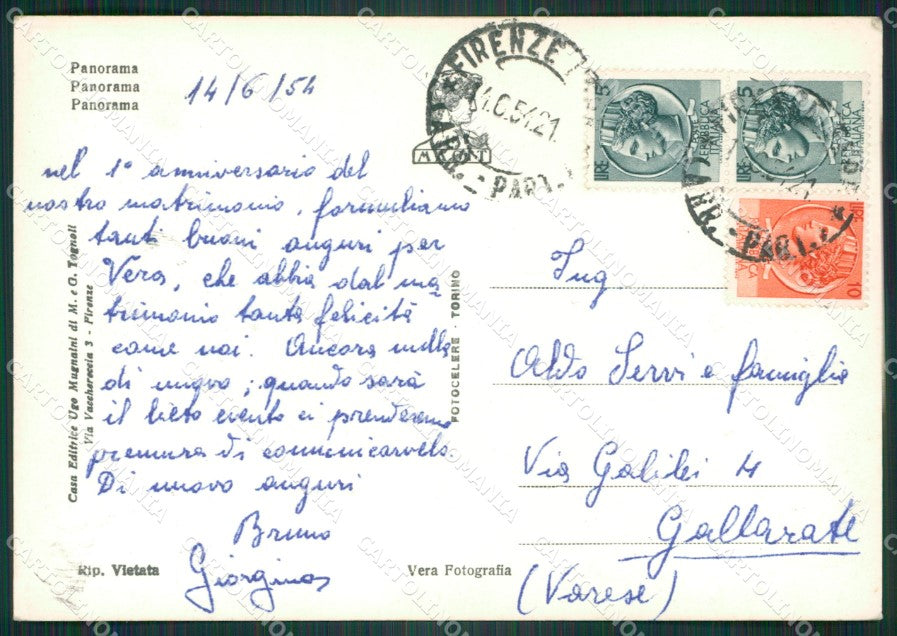 Panorama
Panorama
Panorama
14/6/54
nel 1° anniversario del
nostro matrimonio, formuliamo
tanti buoni auguri per
Vera, che abbia dal ma-
trimonio tanta felicità
come noi. Ancora nulla
di nuovo; quando sarà
il lieto evento ci prenderemo
premura di comunicarvelo.
Di nuovo auguri
Bruno
Giorgina
Rip. Vietata
Vera Fotografia
Casa Editrice Ugo Mugnaini di M. e G. Tognoli
Via Vacchereccia 3 - Firenze
FOTOCELERE - TORINO
FIRENZE
ARR. - PART.
4.6.54.21
LIRE 5
REPUBBLICA
ITALIANA
LIRE 5
REPUBBLICA
ITALIANA
LIRE 10
ARR. - PART.
Ing
Aldo Servi e famiglia
Via Galilei 4
Gallarate
(Varese)
CARTOLINOMANIA